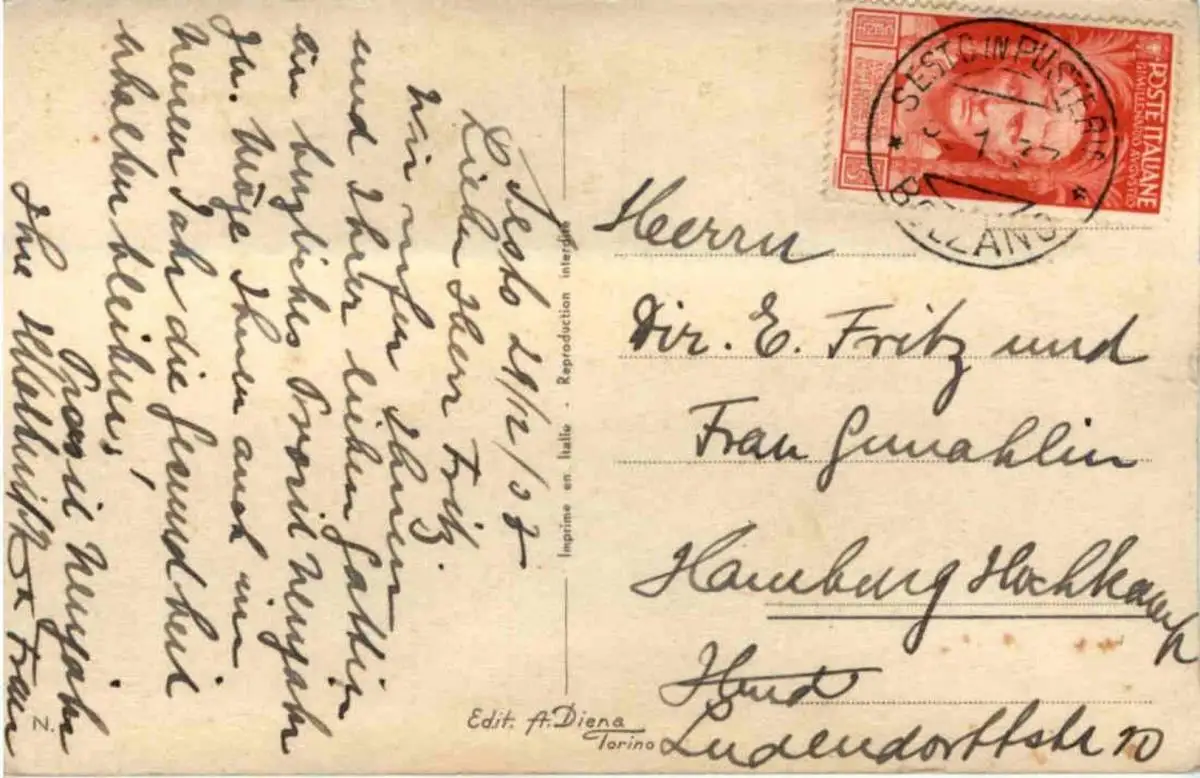 Sesto 29/12/37
Lieber Herr Fritz.
Wir rufen Ihnen
und Ihrer lieben Gattin
ein herzliches Prosit Neujahr
zu. Möge Ihnen auch im
neuen Jahr die Gesundheit
erhalten bleiben,
Prosit Neujahr
Ihre
Frau
N.
Imprimé en Italie - Reproduction interdite
Edit. A. Diena
Torino
POSTE ITALIANE
BIMILLENARIO AVGVSTEO
SESTO IN PUSTERIA
BOLZANO
Herrn
Dir. E. Fritz und
Frau Gemahlin
Hamburg Hochkamp
Ludendorffstr 10